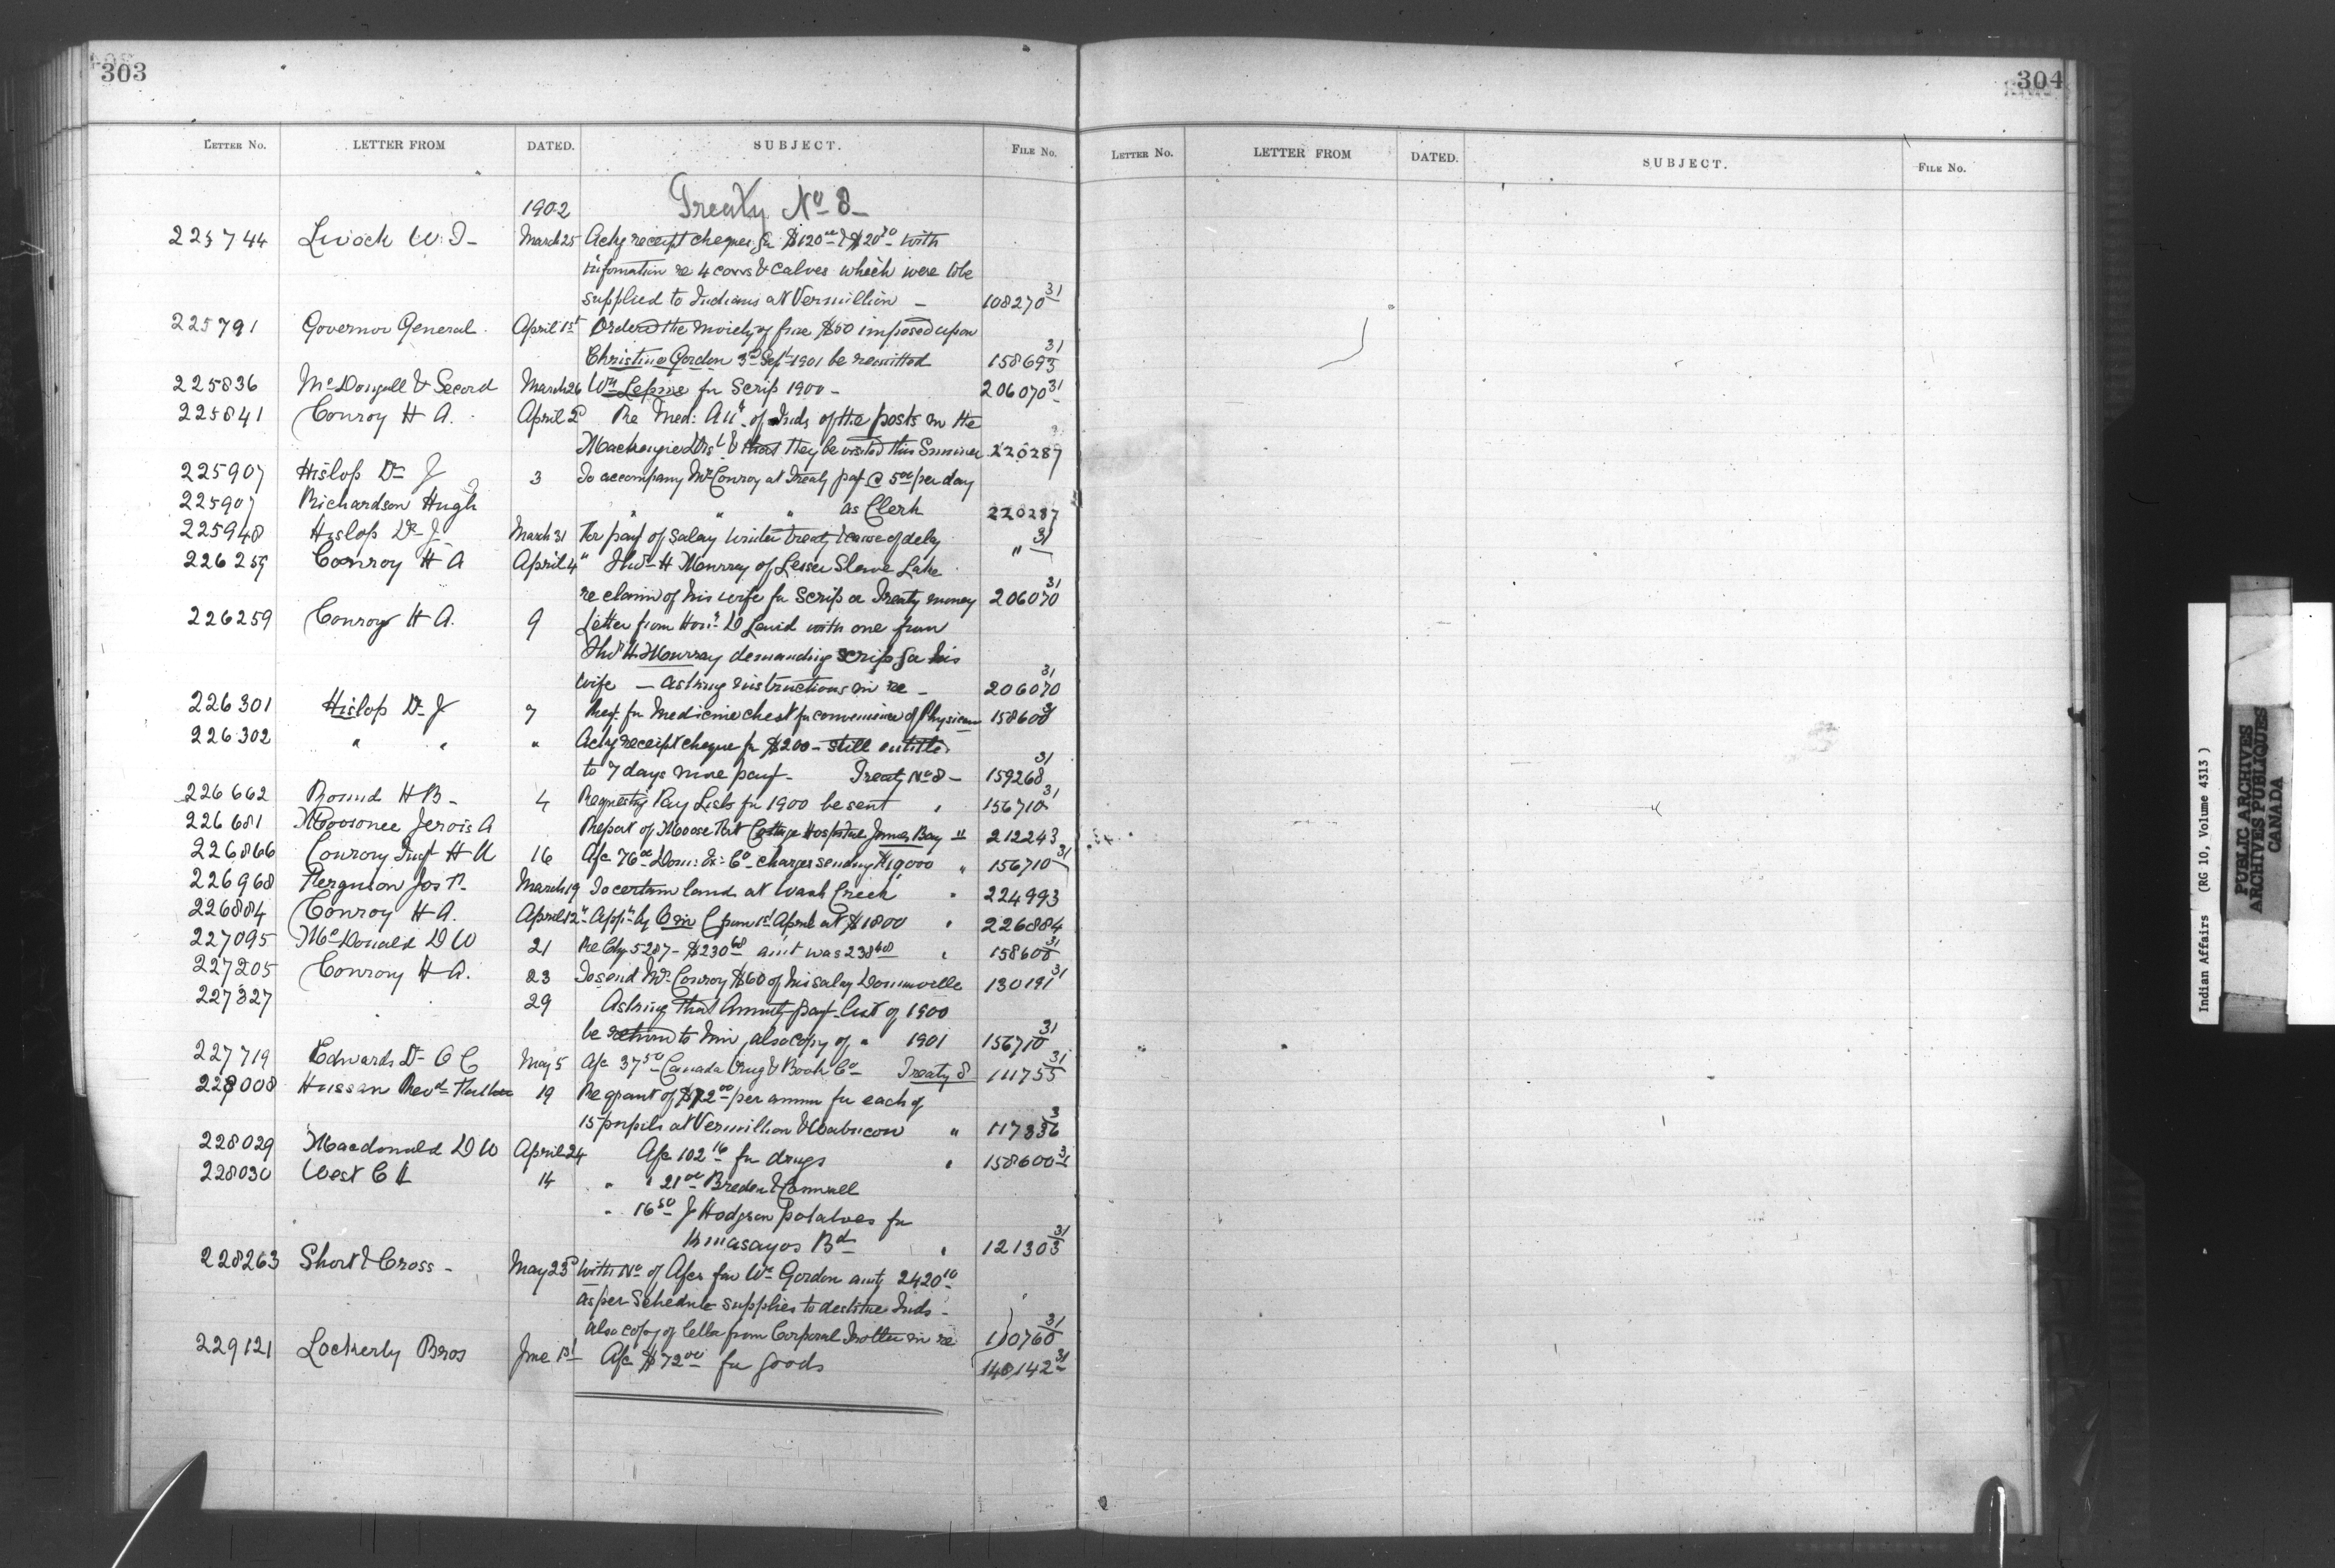 303
304
LETTER No. LETTER FROM DATED. SUBJECT. FILE No.
LETTER No. LETTER FROM DATED. SUBJECT. FILE No.
1902 Treaty No 8
225744 March 25 Ackg receipt cheques for $120 00 & $20 with
information re 4 cows & calves which were to be
supplied to Indians at Vermillion 108270 31
225791 Governor General April 1st Ordered the moiety of fine $50 imposed upon
Christine Gordon 3d Sept 1901 be remitted 158693 31
225836 McDougall & Secord March 26 Wm Lepine for Scrip 1900 - 206070 31
225841 Conroy H A. April 2d Re Med: Att. of Inds of the posts in the
Mackenzie Dist & that they be visited this Summer 220287
225907 Hislop Dr J 3 To accompany Mr Conroy at Treaty pay @ 5 00 per day
225907 Richardson Hugh " " " as Clerk 220287
225948 Hislop Dr J March 31 For payt of salary Winter treaty & cause of delay " 31
226259 Conroy H A April 4 " Thos H Murray of Lesser Slave Lake
re claim of his wife for Scrip or Treaty money 206070 31
226259 Conroy H A. 9 Letter from Hon D Laird with one from
Thos H. Mourray demanding scrip for his
wife - asking instructions in re - 206070 31
226301 Hislop Dr J 7 Req. for Medicine chest for convenience of Physician 158600 31
226302 " " " Ackg receipt cheque for $200 - still entitled
to 7 days more payt - Treaty No 8 - 159268 31
226662 Round H B - 4 Requestg Pay Lists for 1900 be sent " 156710 31
226681 Moosonee Jervois A Report of Moose Fort Cottage Hospital James Bay " 212243
226866 Conroy H A 16 A/c 76 00 Dom: Ex: Co charges sending $19,000 " 156710 31
226968 Ferguson Jos March 19 To certain land at Wash Creek " 224993
226884 Conroy H A. April 12 App by from 1st April at $1800 " 226884
227095 McDonald D W 21 Re Chq 5287 - $230 68 amt was 238 68 " 158600 31
227205 Conroy H A. 23 To send Mr Conroy $60 of his salary 130191 31
227327 29 Asking that Annuity pay list of 1900
be return to him, also copy of " 1901 156710 31
227719 Edwards Dr O C May 5 A/c 37 50 Canada Drug & Book Co Treaty 8 111755 31
228008 Hussan Revd Father 19 Re grant of $72 00 per annum for each of
15 pupils at Vermillion & Wabiscow " 117336 3
228029 Macdonald D W April 24 A/c 102 16 for drugs " 158600 31
228030 West C 14 " " 21 00 Breden & Cornwall
" 16 50 J Hodgson potatoes for
Kinasayos Bd " 121303 31
228263 Short & Cross - May 23d With No of A/cs for Wm Gordon amtg 2420 10
as per Schedule supplies to destitute Inds -
also copy of letter from Corporal Trotter in re 110760 31
229121 Lockerby Bros June 1st A/c $72 00 for goods 140142 31
Indian Affairs (RG 10, Volume 4313)
PUBLIC ARCHIVES
ARCHIVES PUBLIQUES
CANADA